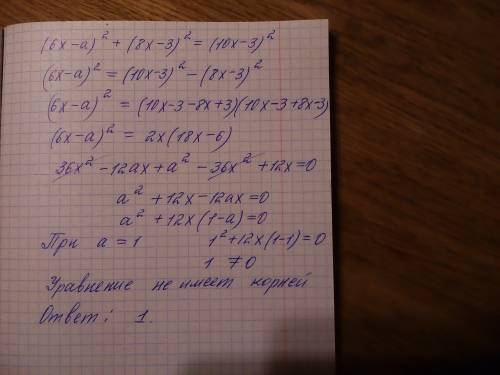 (6x-a)² + (8x-3)² = (10x-3)²
(6x-a)² = (10x-3)² - (8x-3)²
(6x-a)² = (10x-3-8x+3)(10x-3+8x-3)
(6x-a)² = 2x(18x-6)
36x² - 12ax + a² - 36x² + 12x = 0
a² + 12x - 12ax = 0
a² + 12x(1-a) = 0
При a = 1 1² + 12x(1-1) = 0
1 ≠ 0
Уравнение не имеет корней
Ответ: 1.